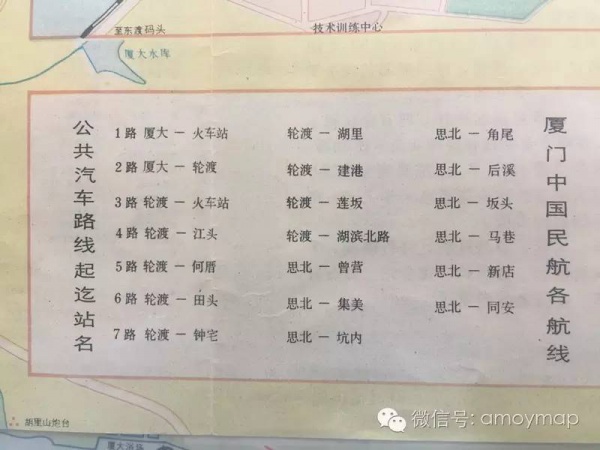 至东渡码头
技术训练中心
厦大水库
公共汽车路线起迄站名
1路 厦大 — 火车站
2路 厦大 — 轮渡
3路 轮渡 — 火车站
4路 轮渡 — 江头
5路 轮渡 — 何厝
6路 轮渡 — 田头
7路 轮渡 — 钟宅
轮渡 — 湖里
轮渡 — 建港
轮渡 — 莲坂
轮渡 — 湖滨北路
思北 — 曾营
思北 — 集美
思北 — 坑内
思北 — 角尾
思北 — 后溪
思北 — 坂头
思北 — 马巷
思北 — 新店
思北 — 同安
厦门中国民航各航线
胡里山炮台
厦大浴场
微信号: amoymap